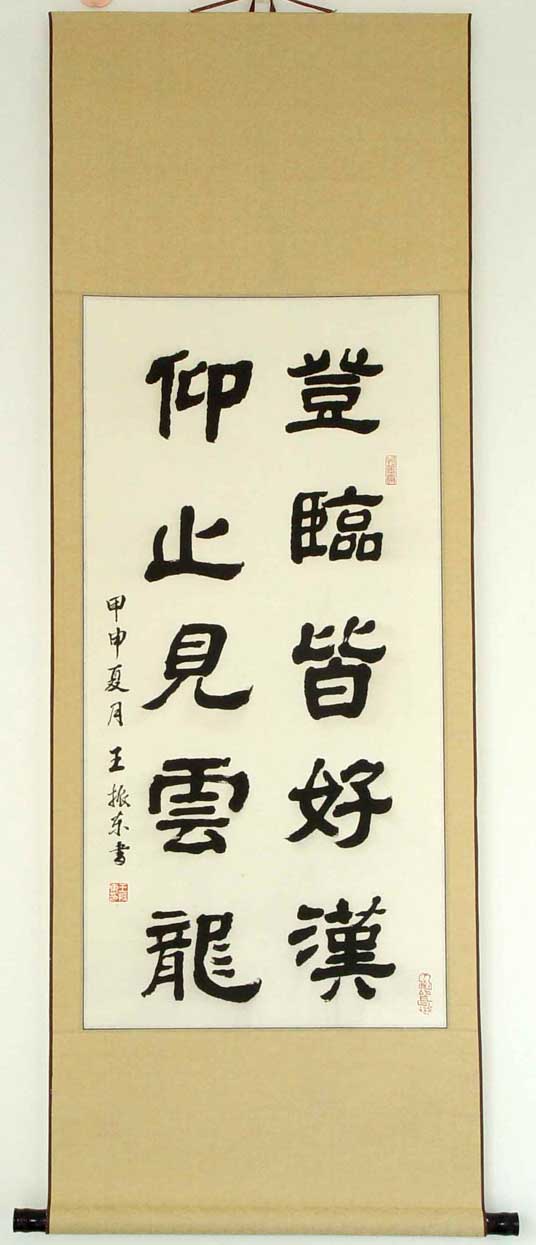 登臨皆好漢
仰止見雲龍
甲申夏月 王振东書